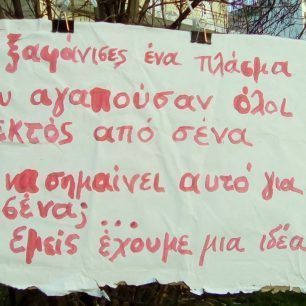 ξαφάνισες ένα πλάσμα
υ αγαπούσαν όλοι
εκτός από σένα
να σημαίνει αυτό για
σένα; ...
Εμείς έχουμε μια ιδέα